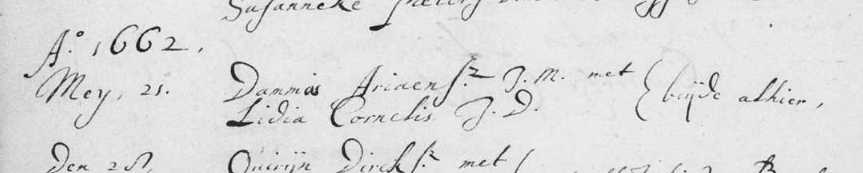 Susanneke Pieters
A.º 1662.
Mey. 21. Dammas Ariaensz. J.M. met
Lidia Cornelis J.D. beijde alhier,
Den 28, Quirijn Dircksz. met